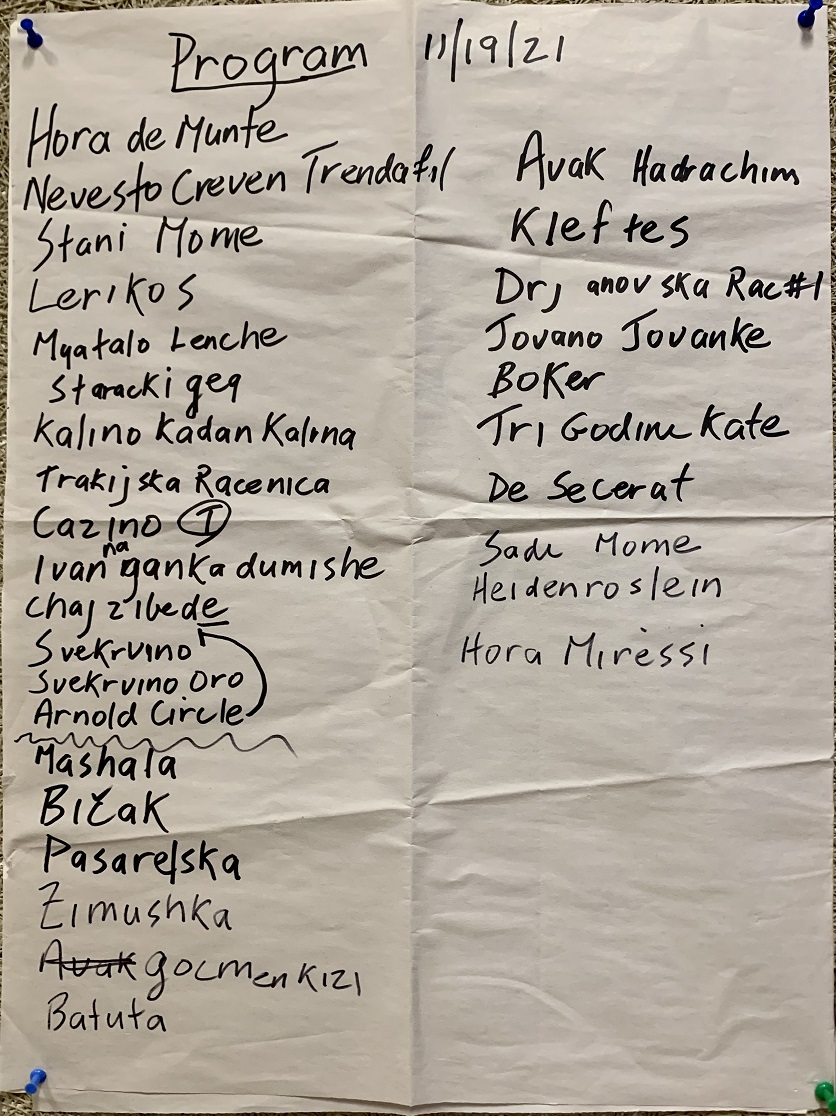 Program 11/19/21
Hora de Munte
Nevesto Creven Trendafil
Stani Mome
Lerikos
Myatalo Lenche
Staracki geg
Kalino Kadan Kalina
Trakijska Racenica
Cazino I
Ivan na ganka dumishe
Chaj zibede
Svekrvino
Svekrvino Oro
Arnold Circle
Mashala
Bičak
Pasarelska
Zimushka
Avak gocmen KIZI
Batuta
Avak Hadrachim
Kleftes
Drjanovska Rac#1
Jovano Jovanke
Boker
Tri Godine Kate
De Secerat
Sadi Mome
Heidenroslein
Hora Miressi